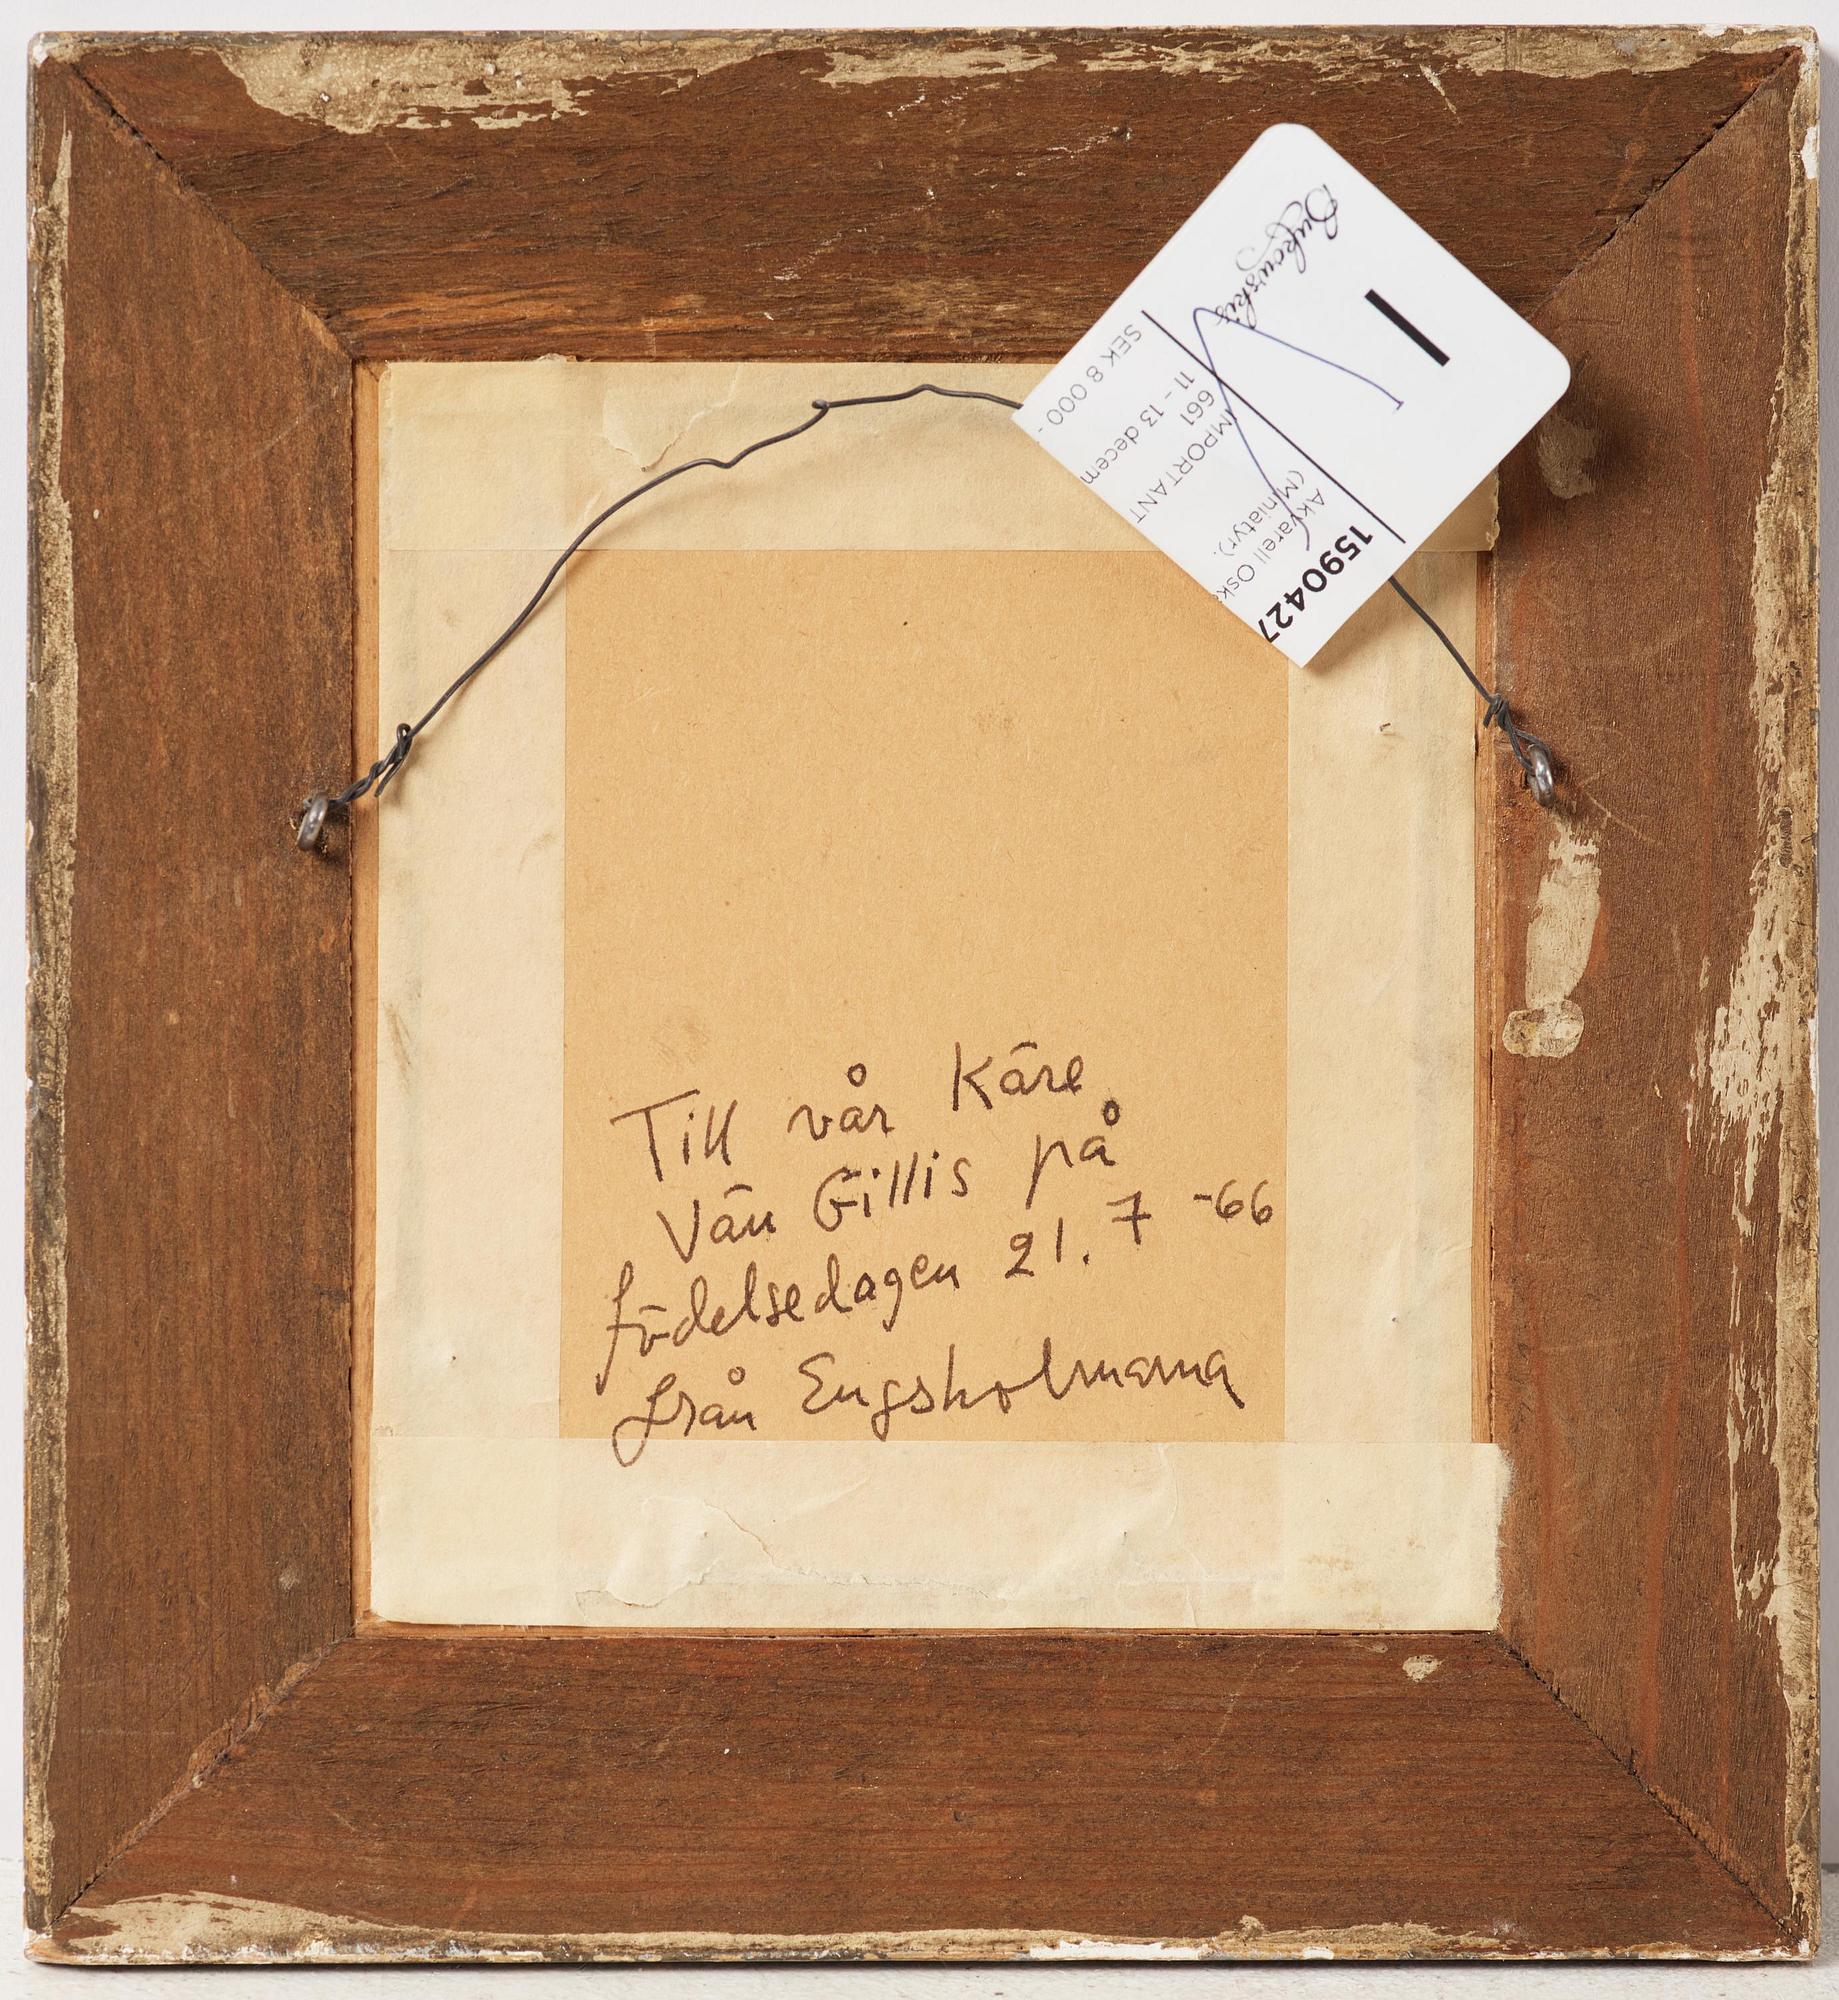 Bukowskis
I
1590427
Akvarell Osk
(Miniatyr).
IMPORTANT
661
11 - 13 decem
SEK 8 000 -
Till vår Käre
Vän Gillis på
födelsedagen 21. 7 -66
från Engsholmarna